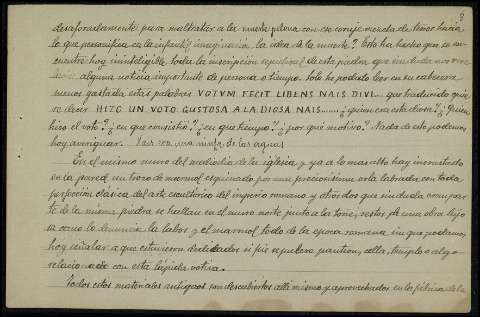 9
desaforadamente para maltratar a la muerta pétrea con ese conjunto mezcla de señor hacia
lo que personifica en la infantil imaginación la idea de la muerte? Esto ha hecho que se en-
cuentre hoy ininteligible toda la inscripción sepulcral de esta piedra que sin duda nos
alguna noticia importante de persona o tiempo. Solo he podido leer en su cabecera
menos gastada estas palabras VOTVM FECIT LIBENS NAIS DIVI.... que traducido quie-
re decir HIZO UN VOTO GUSTOSA A LA DIOSA NAIS...... ¿quien era esta diosa? ¿Quien
hizo el voto? ¿en que consistió? ¿en que tiempo? ¿por qué motivo? Nada de esto podemos
hoy averiguar. Nais era una ninfa de las aguas
En el mismo muro del mediodia de la iglesia y ya a lo mas alto hay incrustado
en la pared un trozo de marmol esquinado por una preciosisima orla labrada con toda
perfección clásica del arte escultórico del imperio romano y otros dos que sin duda eran par-
te de la misma piedra se hallan en el muro norte junto a la torre, restos de una obra lujo-
sa como lo denuncia la labor y el marmol, todo de la epoca romana sin que podamos
hoy señalar a que estuvieron dedicados si fué sepulcro panteón, cella, templo o algo
relacionado con esta lápida votiva.
Todos estos materiales antiguos son descubiertos alli mismo y aprovechados en la fábrica de la